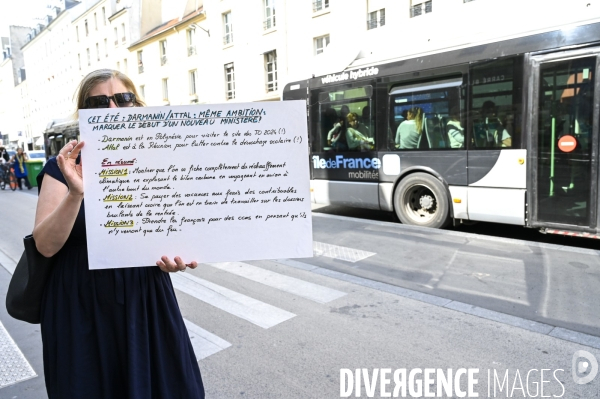 CET ÉTÉ : DARMANIN/ATTAL : MÊME AMBITION
MARQUER LE DÉBUT D'UN NOUVEAU MINISTÈRE !
- Darmanin est en Polynésie pour visiter le site du JO 2024 (!)
- Attal est à la Réunion pour lutter contre le décrochage scolaire (!)
En résumé :
MISSION 1 : Montrer que l'on se fiche complètement du réchauffement
climatique en explosant le bilan carbone en voyageant en avion à
l'autre bout du monde.
MISSION 2 : Se payer des vacances aux frais des contribuables
en faisant croire que l'on est en train de travailler sur les dossiers
brûlants de la rentrée.
MISSION 3 : Prendre les français pour des cons en pensant qu'ils
n'y verront que du feu.
véhicule HYBRIDE
île de France
mobilités
DIVERGENCE IMAGES